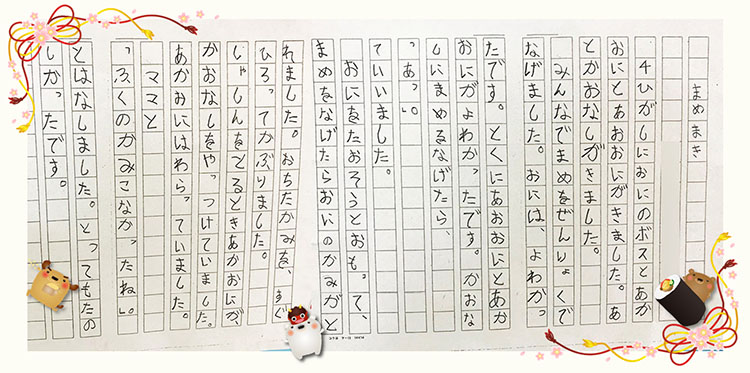 まめまき
4ひがしにおにのボスとあか
おにとあおおにがきました。あ
とかおなしがきました。
みんなでまめをぜんりょくで
なげました。おには、よわかっ
たです。とくにあおおにとあか
おにがよわかったです。かおな
しにまめるなげたら、
「あっ」。
ていいました。
おにをたおそうとおもって、
まめをなげたらおにのかみがと
れました。おちたかみを、すぐ
ひろってかぶりました。
しゃしんをとるときあかおにが、
かおなしをやっつけていました。
あかおにはわらっていました。
ママと
「ふくのかみこなかったね」。
とはなしました。とってもたの
しかったです。